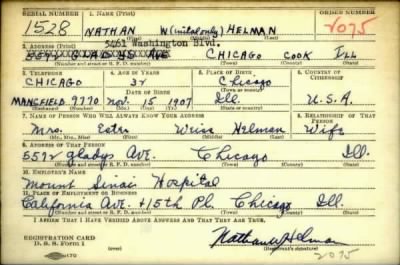 SERIAL NUMBER 1. NAME (Print) ORDER NUMBER
1528 NATHAN W (initial only) HELMAN 2075
5461 Washington Blvd.
2. ADDRESS (Print)
CHICAGO COOK ILL
(Number and street or R. F. D. number) (Town) (County) (State)
3. TELEPHONE 4. AGE IN YEARS 5. PLACE OF BIRTH 6. COUNTRY OF CITIZENSHIP
CHICAGO Chicago
DATE OF BIRTH (Town or county)
MANSFIELD 9770 Nov. 15 1907 Ill. U.S.A.
(Exchange) (Number) (Mo.) (Day) (Yr.) (State or country)
7. NAME OF PERSON WHO WILL ALWAYS KNOW YOUR ADDRESS 8. RELATIONSHIP OF THAT PERSON
Mrs. Weiss Helman Wife
(Mr., Mrs., Miss) (First) (Middle) (Last)
9. ADDRESS OF THAT PERSON
5572 Gladys Ave. Chicago Ill.
(Number and street or R. F. D. number) (Town) (County) (State)
10. EMPLOYER'S NAME
Mount Sinai Hospital
11. PLACE OF EMPLOYMENT OR BUSINESS
California Ave. + 15th Pl. Chicago Ill.
(Number and street or R. F. D. number) (Town) (County) (State)
I AFFIRM THAT I HAVE VERIFIED ABOVE ANSWERS AND THAT THEY ARE TRUE.
REGISTRATION CARD
D. S. S. Form 1 Nathan W Helman
(Registrant's signature)
2075